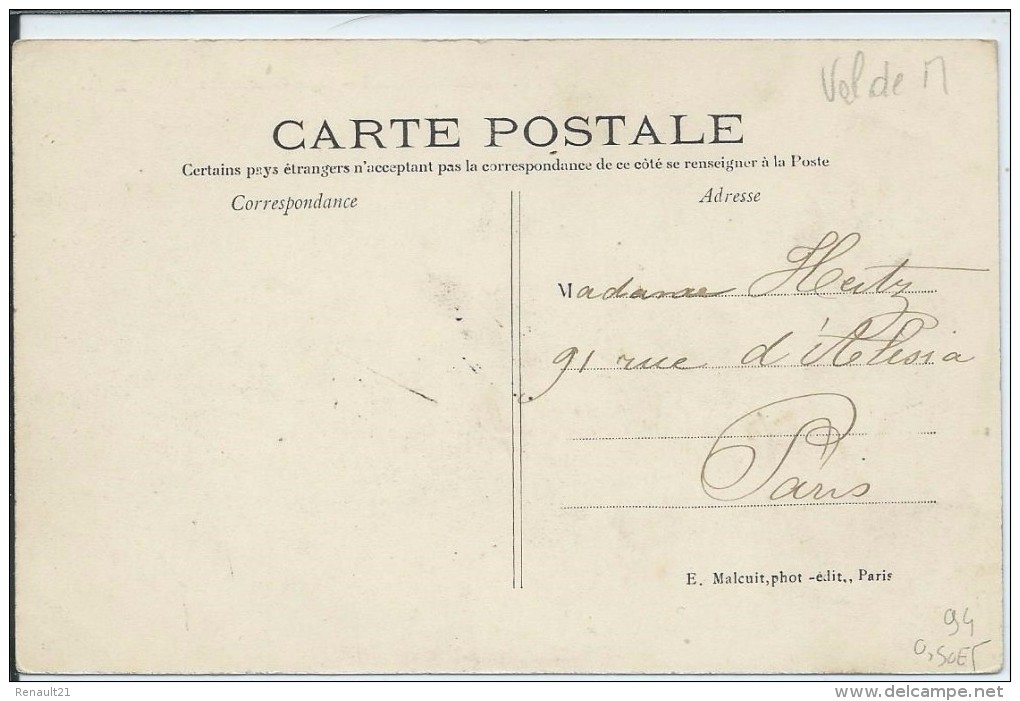 Val de M
CARTE POSTALE
Certains pays étrangers n'acceptent pas la correspondance de ce côté se renseigner à la Poste
Correspondance
Adresse
Madame Hertz
91 rue d'Alesia
Paris
E. Malcuit, phot -édit., Paris
94
0,50ET
Renault21
www.delcampe.net